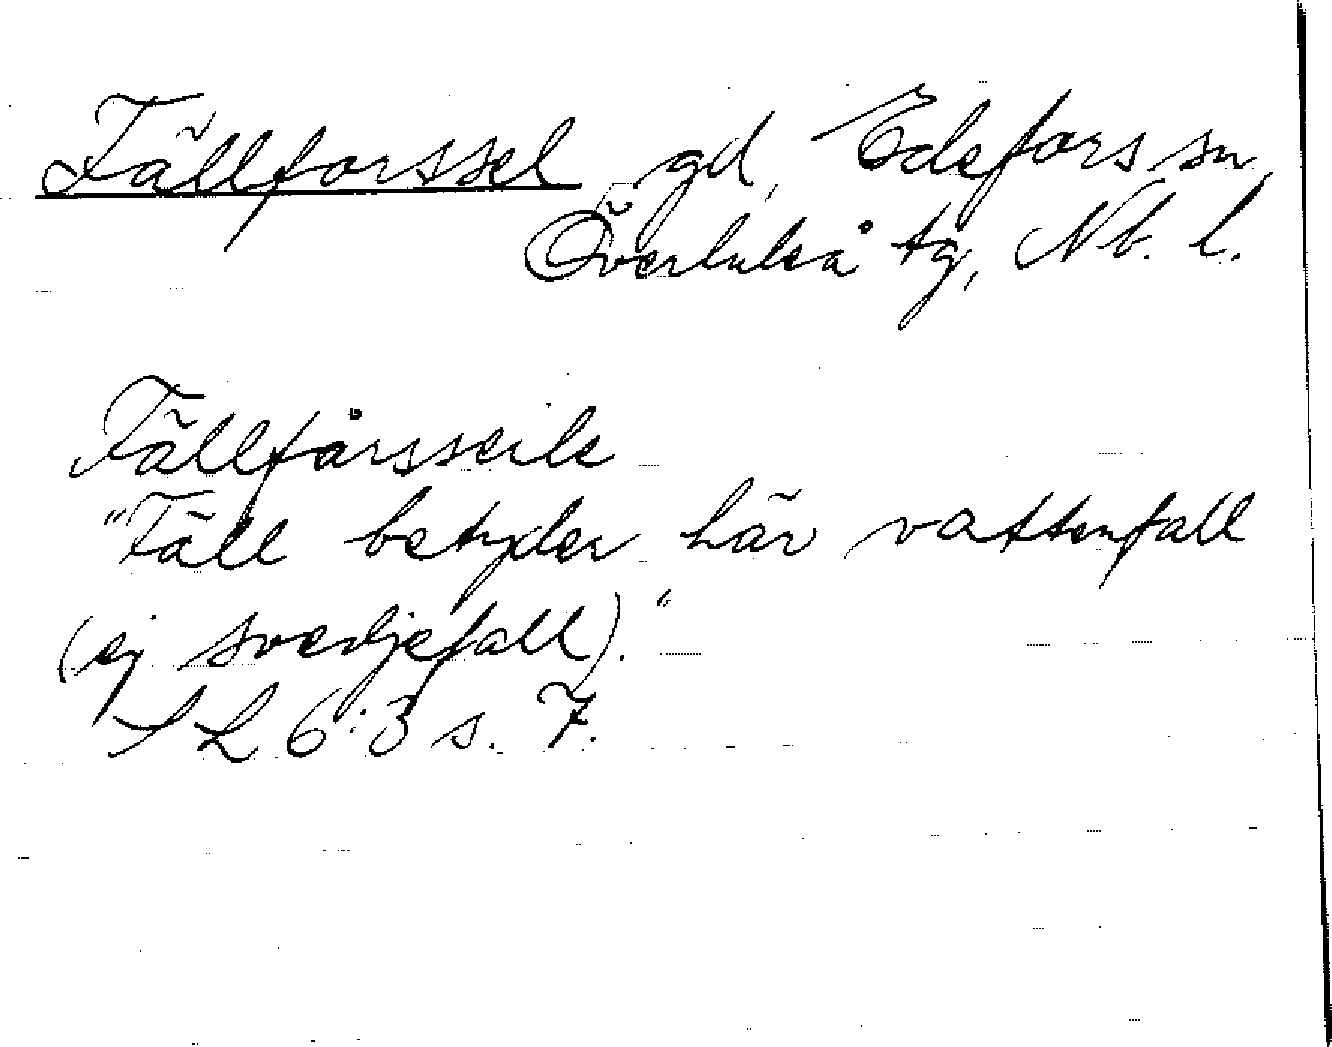 Fällforssel gd, Edefors sn,
Överluleå tg, Nb. l.
Fällfårsseile
"Fäll betyder här vattenfall
(ej svedjefall)."
SL 6:3 s. 7.